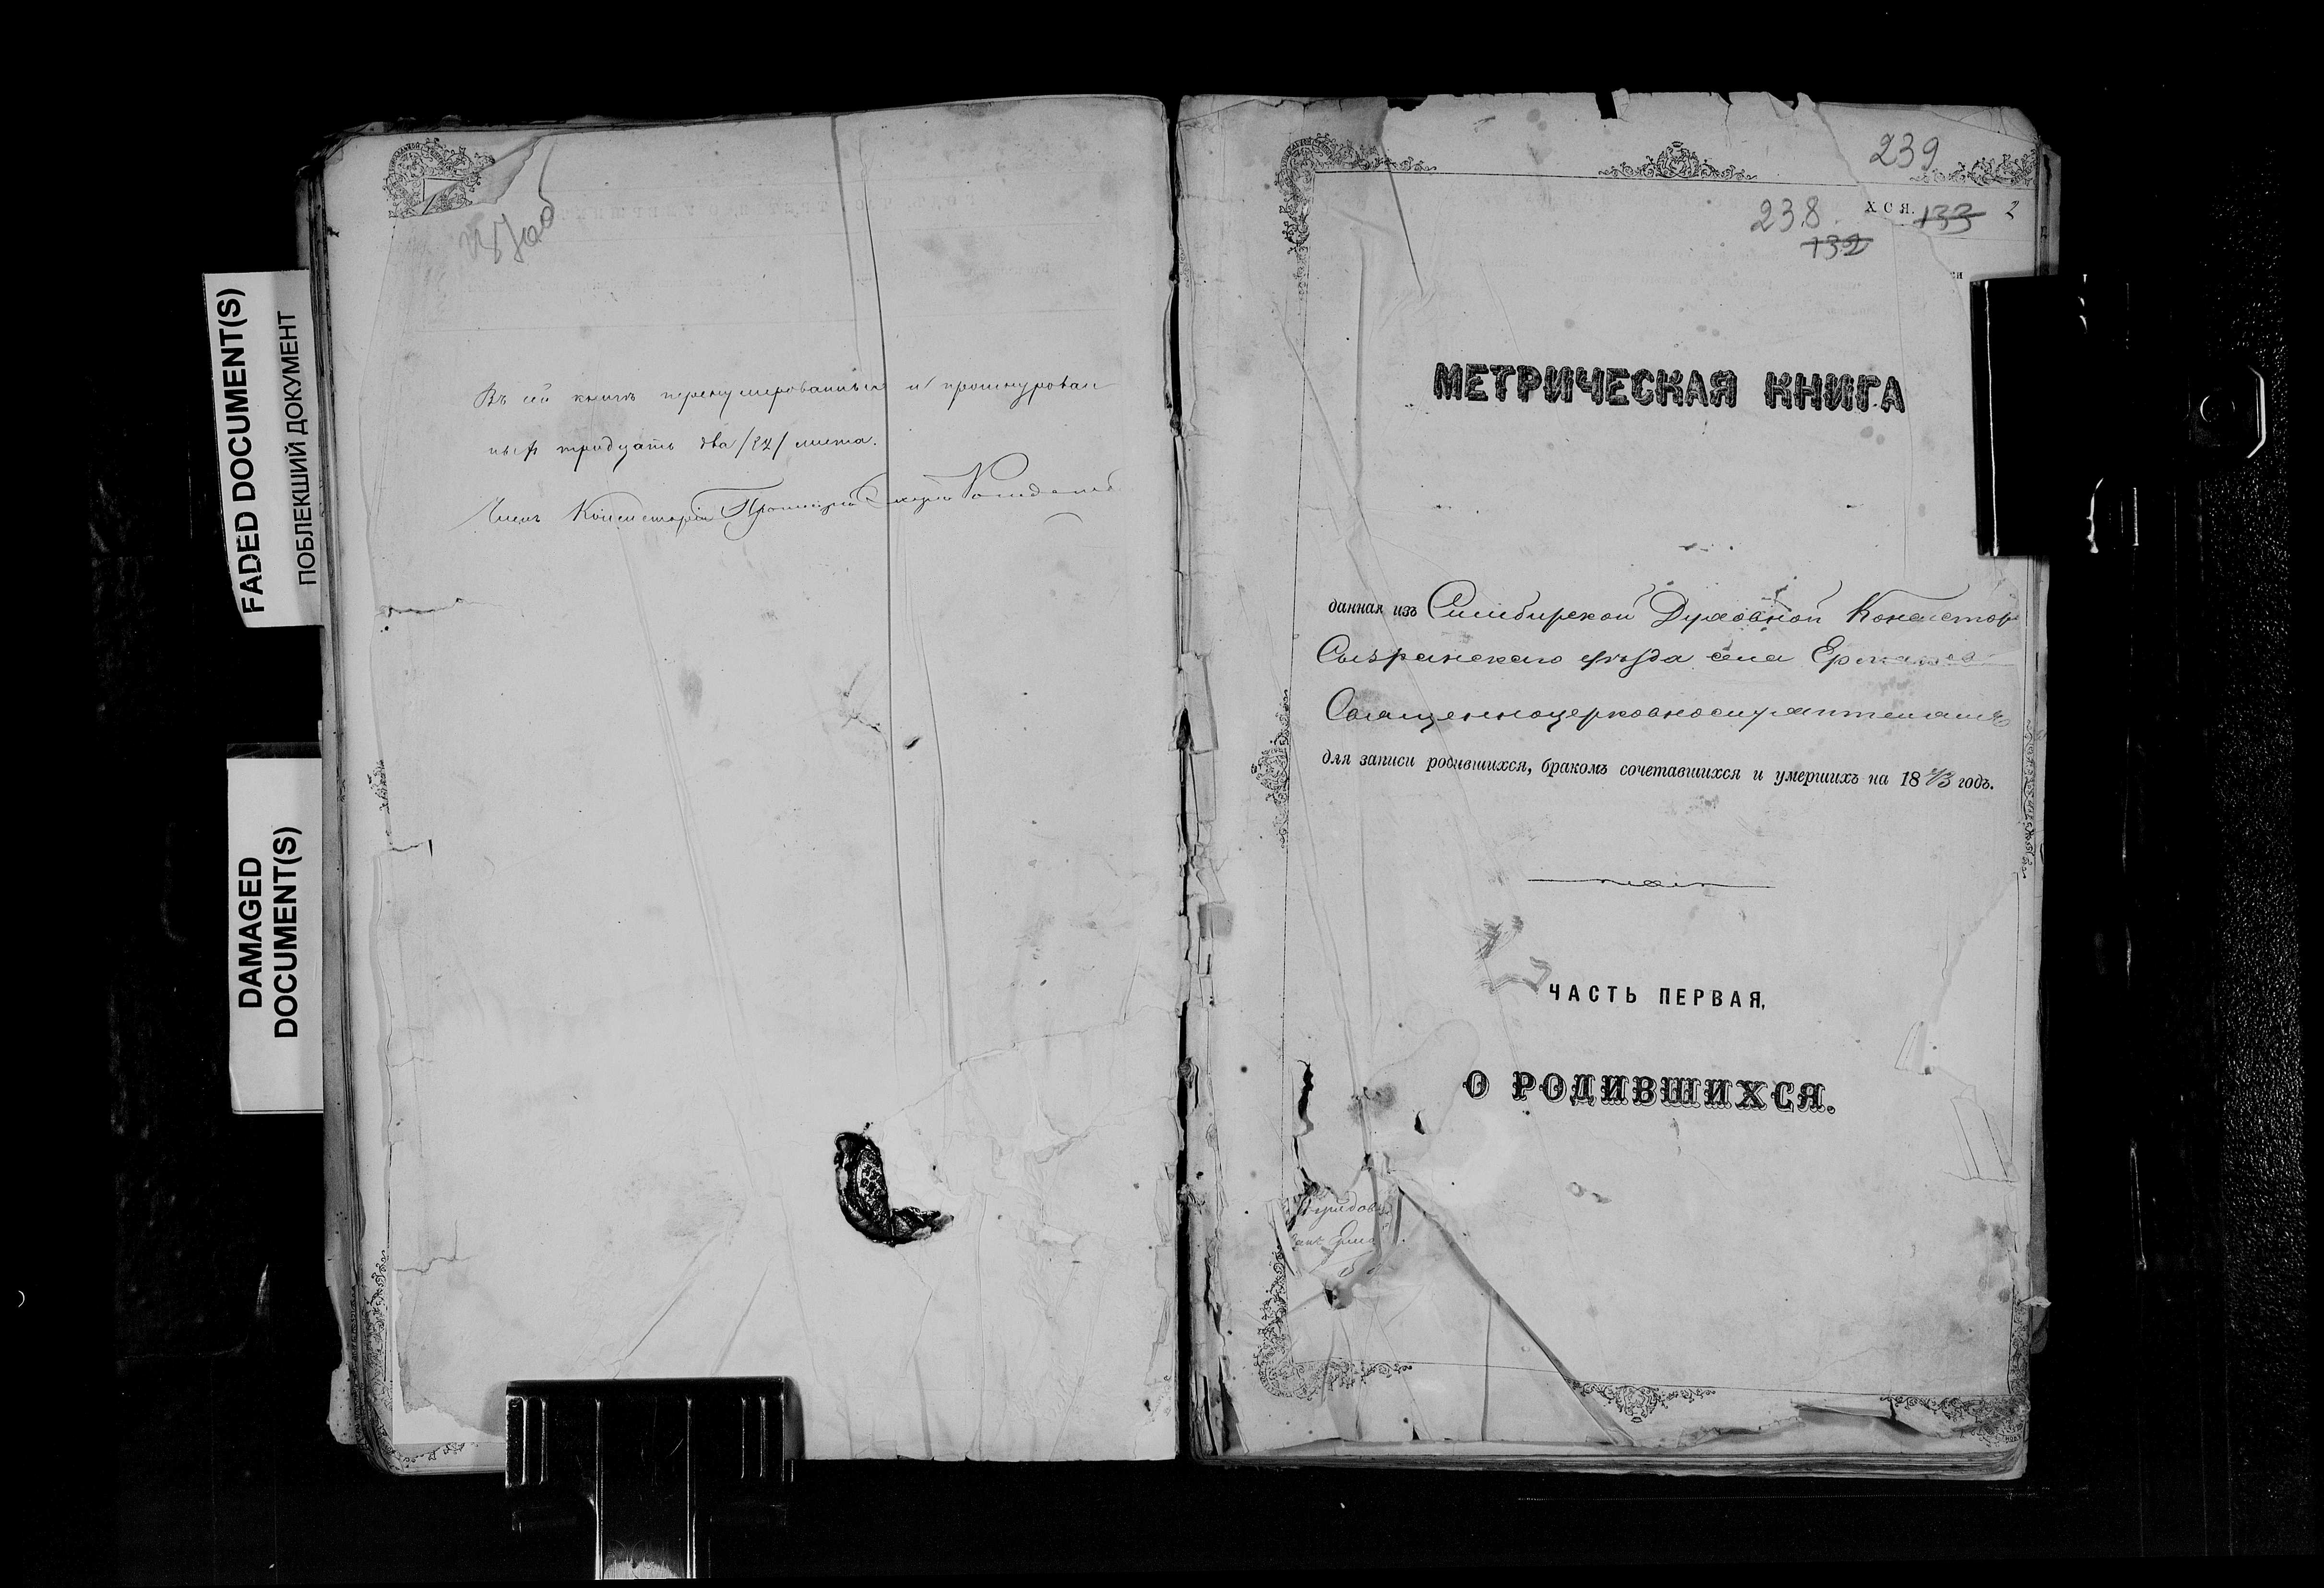 FADED DOCUMENT(S)
ПОБЛЕКШИЙ ДОКУМЕНТ
DAMAGED
DOCUMENT(S)
Въ сей книгѣ перенумерованныхъ и прошнурован
ныхъ тридцать два /32/ листа.
Членъ Консисторіи Протоіерей
239
238
ХСЯ. 133 2
132
МЕТРИЧЕСКАЯ КНИГА
данная изъ Симбирской Духовной Консистор
Сызранскаго уѣзда села
Священноцерковнослужителямъ
для записи родившихся, бракомъ сочетавшихся и умершихъ на 1873 годъ.
ЧАСТЬ ПЕРВАЯ,
О РОДИВШИХСЯ.